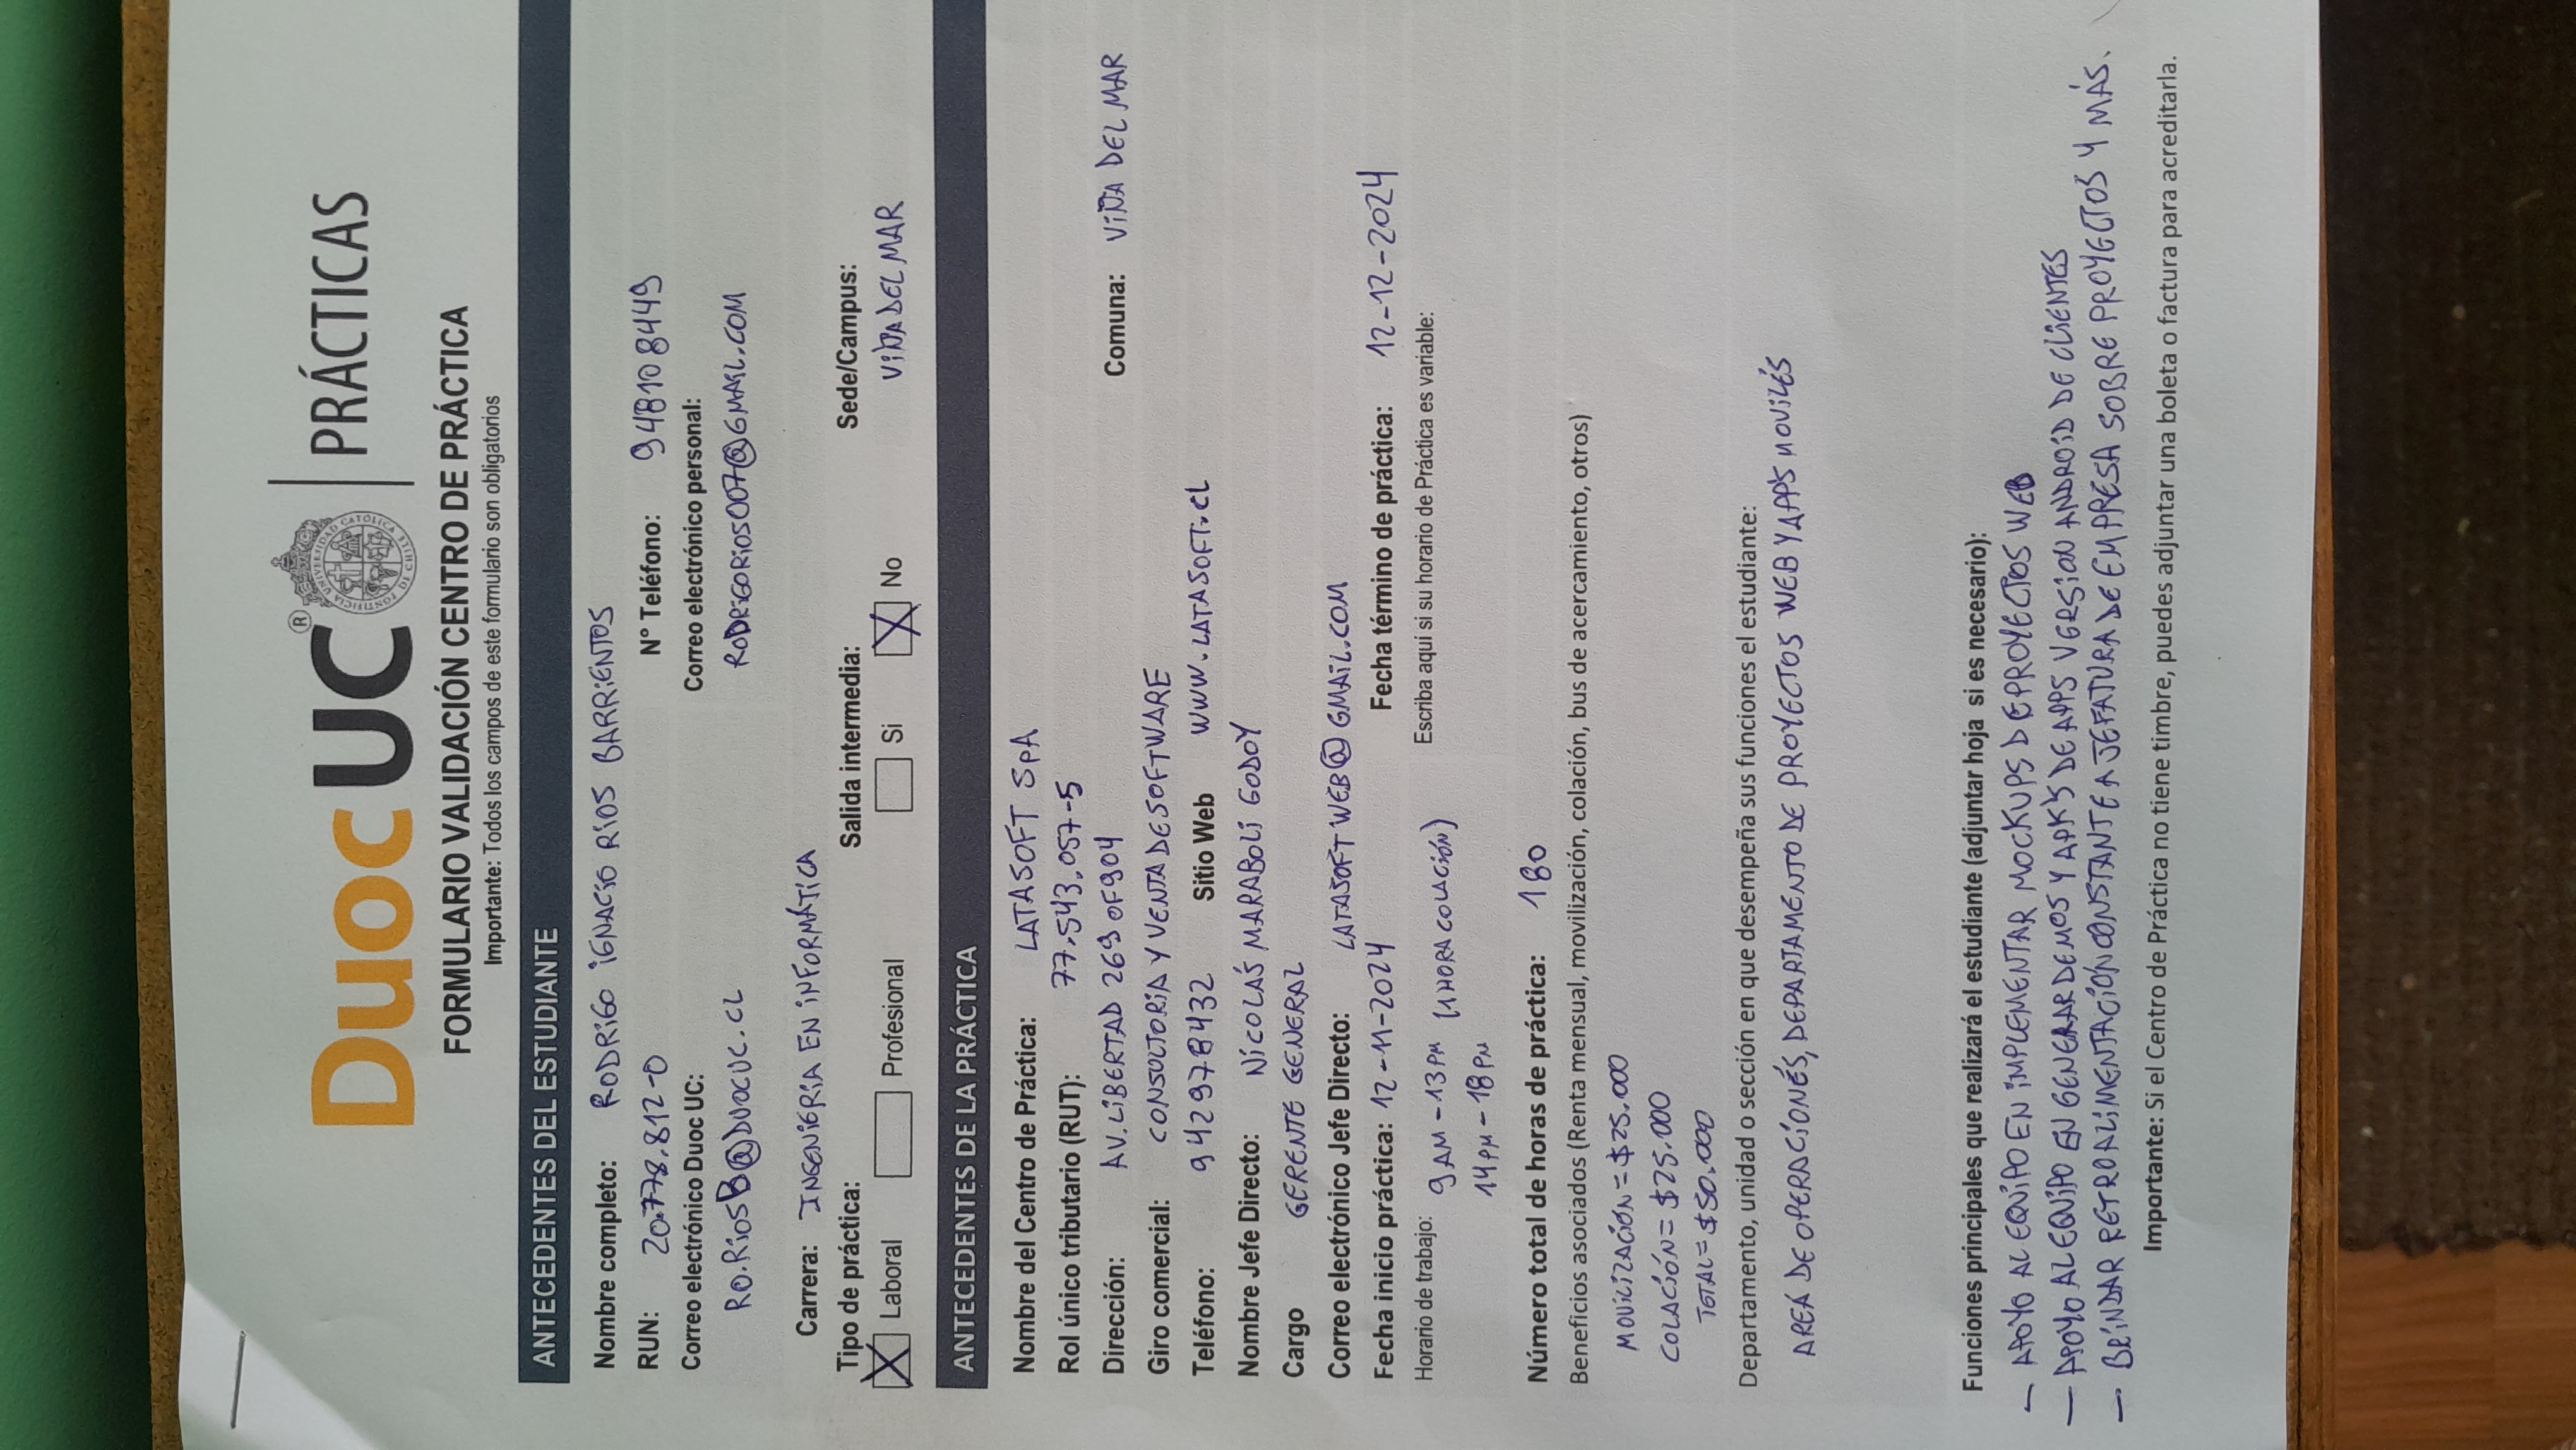 Duoc UC® PRÁCTICAS
PONTIFICIA UNIVERSIDAD CATOLICA DE CHILE
FORMULARIO VALIDACIÓN CENTRO DE PRÁCTICA
Importante: Todos los campos de este formulario son obligatorios
ANTECEDENTES DEL ESTUDIANTE
Nombre completo: RODRIGO IGNACIO RIOS BARRIENTOS
RUN: 20.778.812-0 N° Teléfono: 948108449
Correo electrónico Duoc UC: Correo electrónico personal:
RO.RIOSB@DUOCUC.CL RODRIGORIOS007@GMAIL.COM
Carrera: INGENIERIA EN INFORMÁTICA
Tipo de práctica: Salida intermedia: Sede/Campus:
X Laboral Profesional Si X No VIÑA DEL MAR
ANTECEDENTES DE LA PRÁCTICA
Nombre del Centro de Práctica: LATASOFT SPA
Rol único tributario (RUT): 77.543.057-5
Dirección: AV. LIBERTAD 269 OF904 Comuna: VIÑA DEL MAR
Giro comercial: CONSULTORIA Y VENTA DE SOFTWARE
Teléfono: 942978432 Sitio Web WWW.LATASOFT.CL
Nombre Jefe Directo: NICOLÁS MARABOLI GODOY
Cargo GERENTE GENERAL
Correo electrónico Jefe Directo: LATASOFTWEB@GMAIL.COM
Fecha inicio práctica: 12-11-2024 Fecha término de práctica: 12-12-2024
Horario de trabajo: 9AM - 13PM (1 HORA COLACIÓN) Escriba aquí si su horario de Práctica es variable:
14PM - 18PM
Número total de horas de práctica: 180
Beneficios asociados (Renta mensual, movilización, colación, bus de acercamiento, otros)
MOVILIZACIÓN = $25.000
COLACIÓN = $25.000
TOTAL = $50.000
Departamento, unidad o sección en que desempeña sus funciones el estudiante:
AREÁ DE OPERACIONÉS, DEPARTAMENTO DE PROYECTOS WEB Y APP'S MOVILÉS
Funciones principales que realizará el estudiante (adjuntar hoja si es necesario):
- APOYO AL EQUIPO EN IMPLEMENTAR MOCKUPS DE PROYECTOS WEB
- APOYO AL EQUIPO EN GENERAR DEMOS Y APK'S DE APPS VERSION ANDROID DE CLIENTES
- BRINDAR RETROALIMENTACIÓN CONSTANTE A JEFATURA DE EMPRESA SOBRE PROYECTOS Y MÁS.
Importante: Si el Centro de Práctica no tiene timbre, puedes adjuntar una boleta o factura para acreditarla.